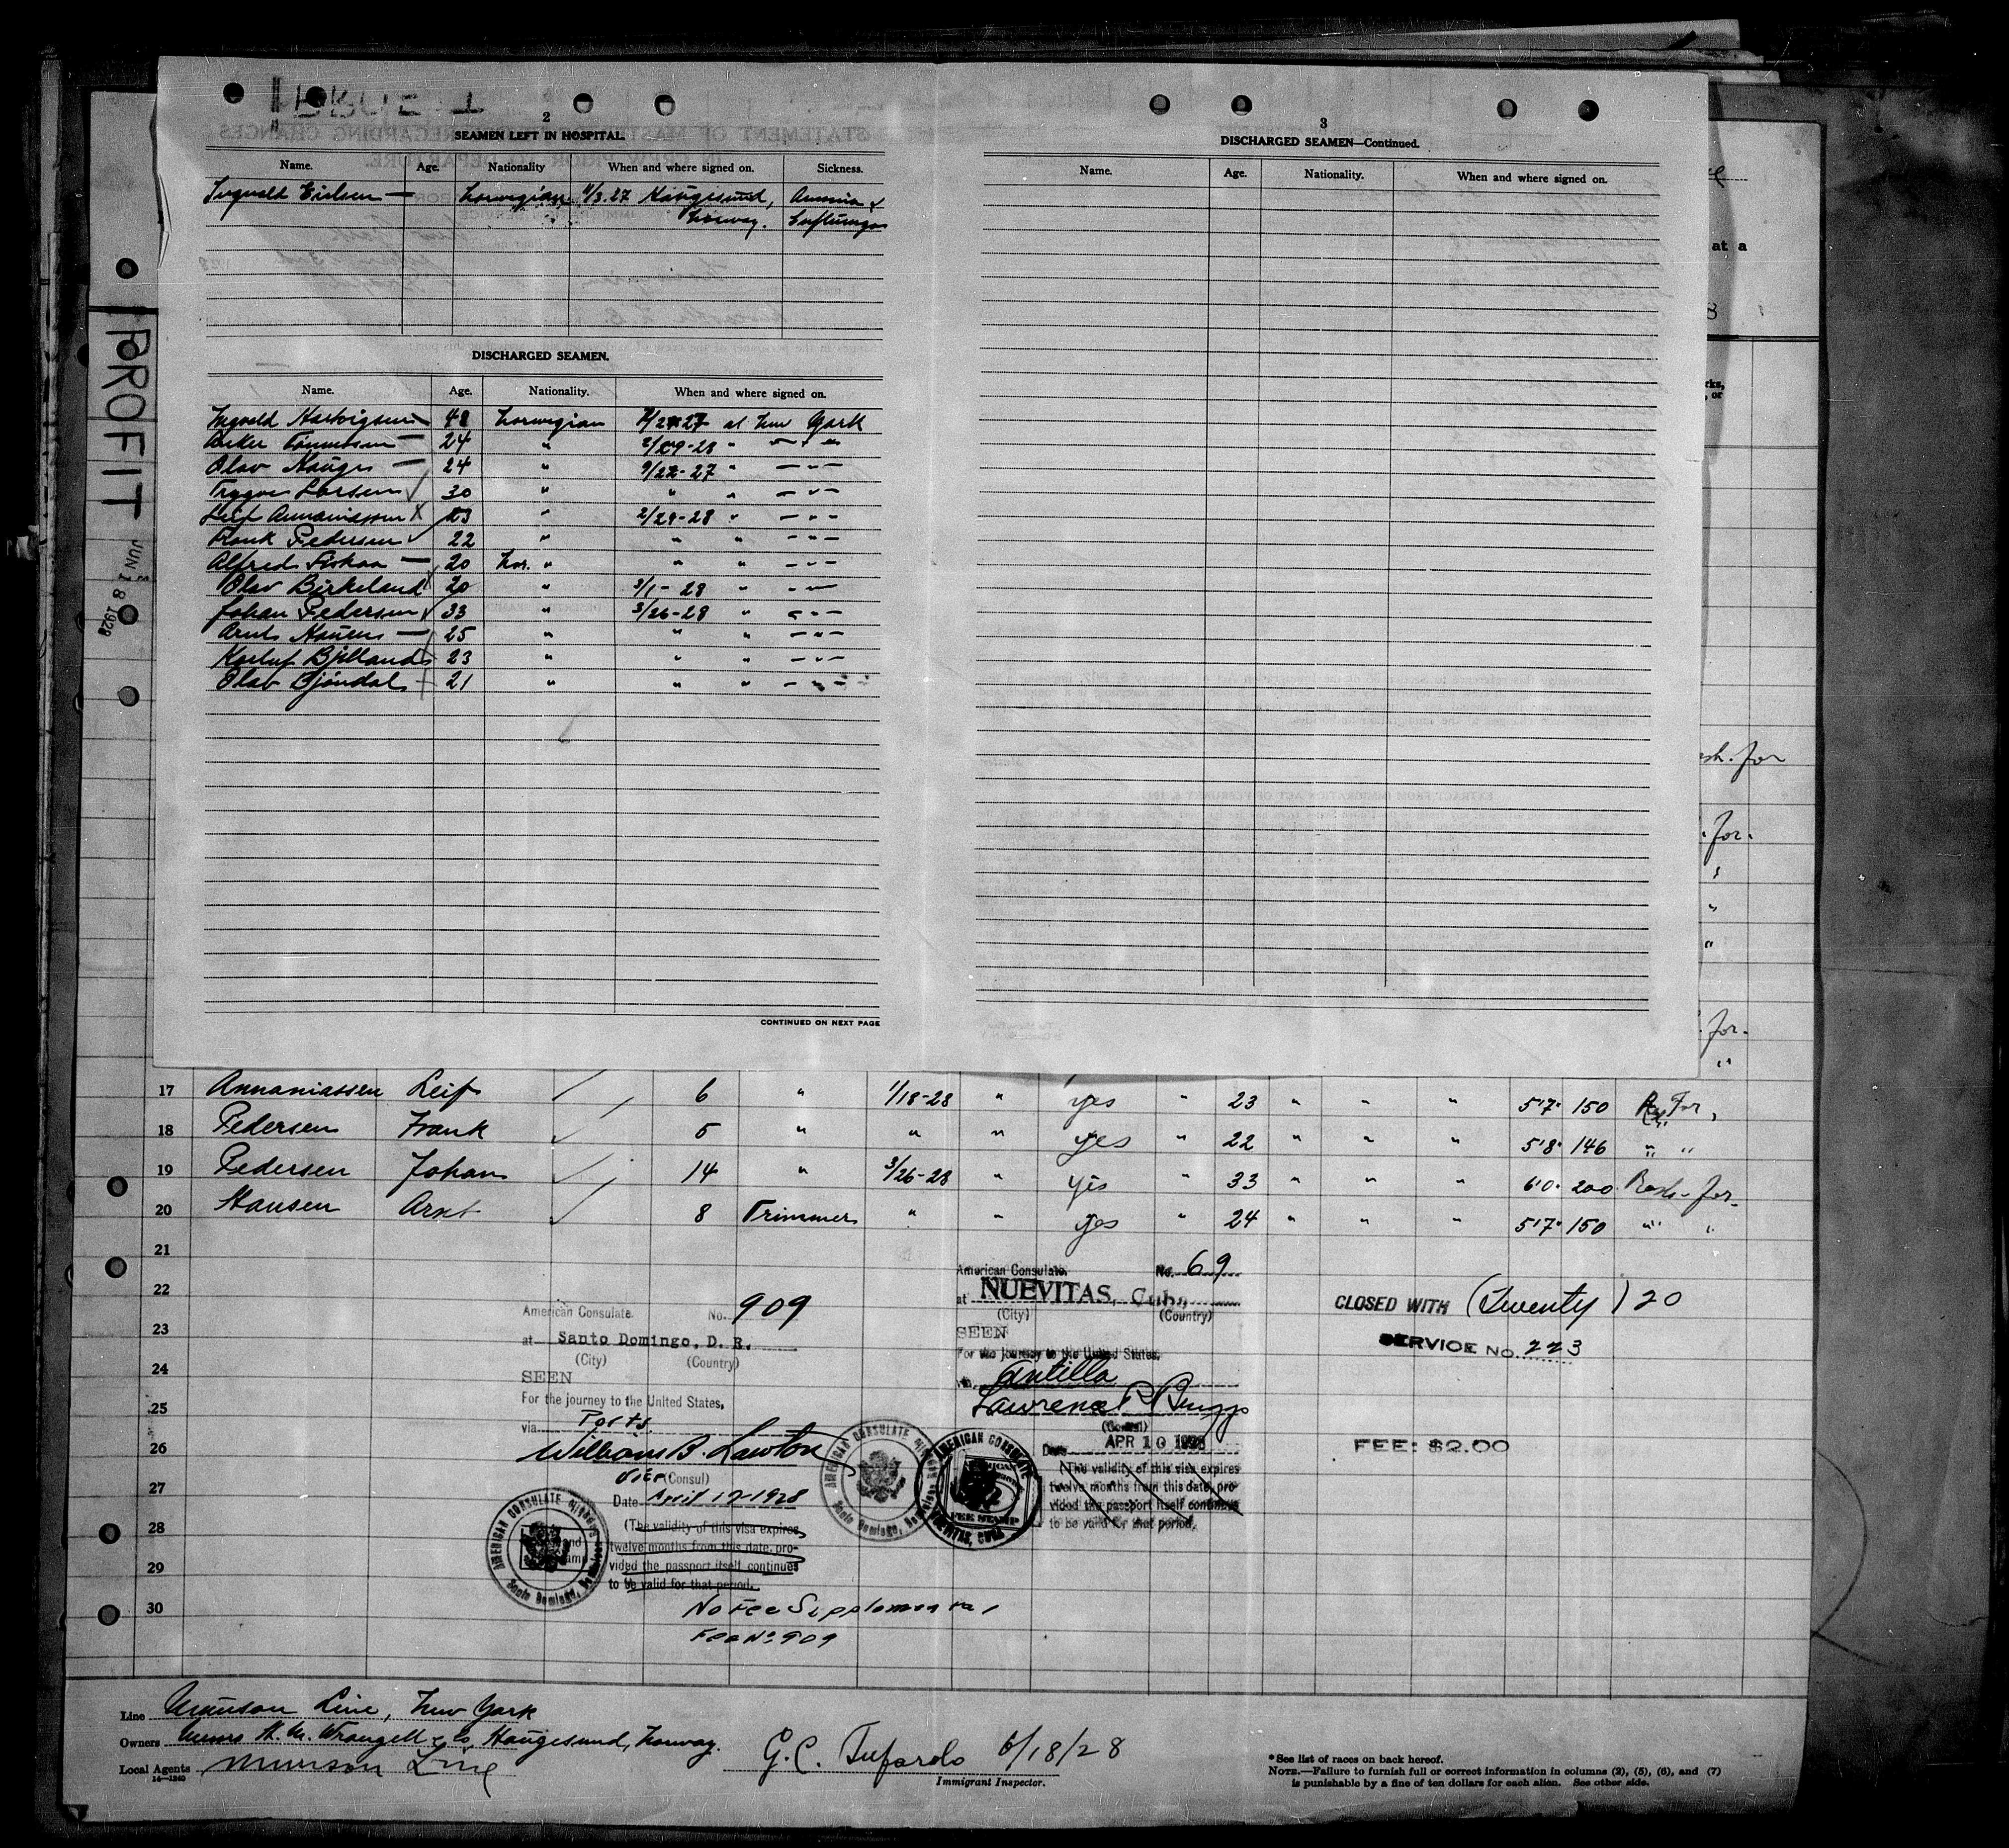 2
SEAMEN LEFT IN HOSPITAL.
Name. Age. Nationality When and where signed on. Sickness.
Ingvald Eielsen — Norwegian 4/3.27 Haugesund, &
Norway.
DISCHARGED SEAMEN.
Name. Age. Nationality. When and where signed on.
Ingvald — 48 Norwegian 27 at New York
— 24 " 2/29-28 " — " —
Olav Hauges — 24 " 9/22-27 " — " —
Trygve Larsen 30 " " " — " —
Leif Annaniassen 23 " 2/29-28 " — " —
Frank Pedersen 22 " " " — " —
Alfred — 20 Nor. " " " — " —
Olav Birkeland 20 " 3/1-28 " — " —
Johan Pedersen 33 " 3/26-28 " — " —
— 25 " " " — " —
Bjelland 23 " " " — " —
Olav 21 " " " — " —
CONTINUED ON NEXT PAGE
3
DISCHARGED SEAMEN—Continued.
Name. Age. Nationality. When and where signed on.
at a
8
rks,
or
sh. for
. for.
"
"
. for.
"
PROFIT
JUN 18 1928
17 Annaniassen Leif 6 " 1/18-28 " yes " 23 " " " 5'7" 150 For,
18 Pedersen Frank 5 " " " yes " 22 " " " 5'8" 146 " "
19 Pedersen Johan 14 " 3/26-28 " yes " 33 " " " 6'0" 200 for
20 Hansen Arnt 8 Trimmer " " yes " 24 " " " 5'7" 150 " "
21
22
23
24
25
26
27
28
29
30
American Consulate. No. 909
at Santo Domingo, D. R.
(City) (Country)
SEEN
For the journey to the United States,
via Ports
William B. Lawton
Vice (Consul)
Date April 17-1928
(The validity of this visa expires
twelve months from this date, pro-
vided the passport itself continues
to be valid for that period.
No Fee Supplemental
Fee No 909
AMERICAN CONSULATE
Santo Domingo,
AMERICAN CONSULATE
Santo Domingo,
American Consulate. No. 69
at NUEVITAS, Cuba
(City) (Country)
SEEN
For the journey to the United States.
via Antilla
Lawrence P Briggs
(Consul)
Date APR 10 1928
(The validity of this visa expires
twelve months from this date, pro-
vided the passport itself continues
to be valid for that period.
AMERICAN CONSULATE
FEE STAMP
NUEVITAS, CUBA
CLOSED WITH (Twenty) 20
SERVICE NO. 223
FEE: $2.00
Line Munson Line, New York
Owners Messrs H. M. Wrangell & Co, Haugesund, Norway.
Local Agents Munson Line
14—1240
G. C. Tufarolo 6/18/28
Immigrant Inspector.
* See list of races on back hereof.
NOTE.—Failure to furnish full or correct information in columns (2), (5), (6), and (7)
is punishable by a fine of ten dollars for each alien. See other side.